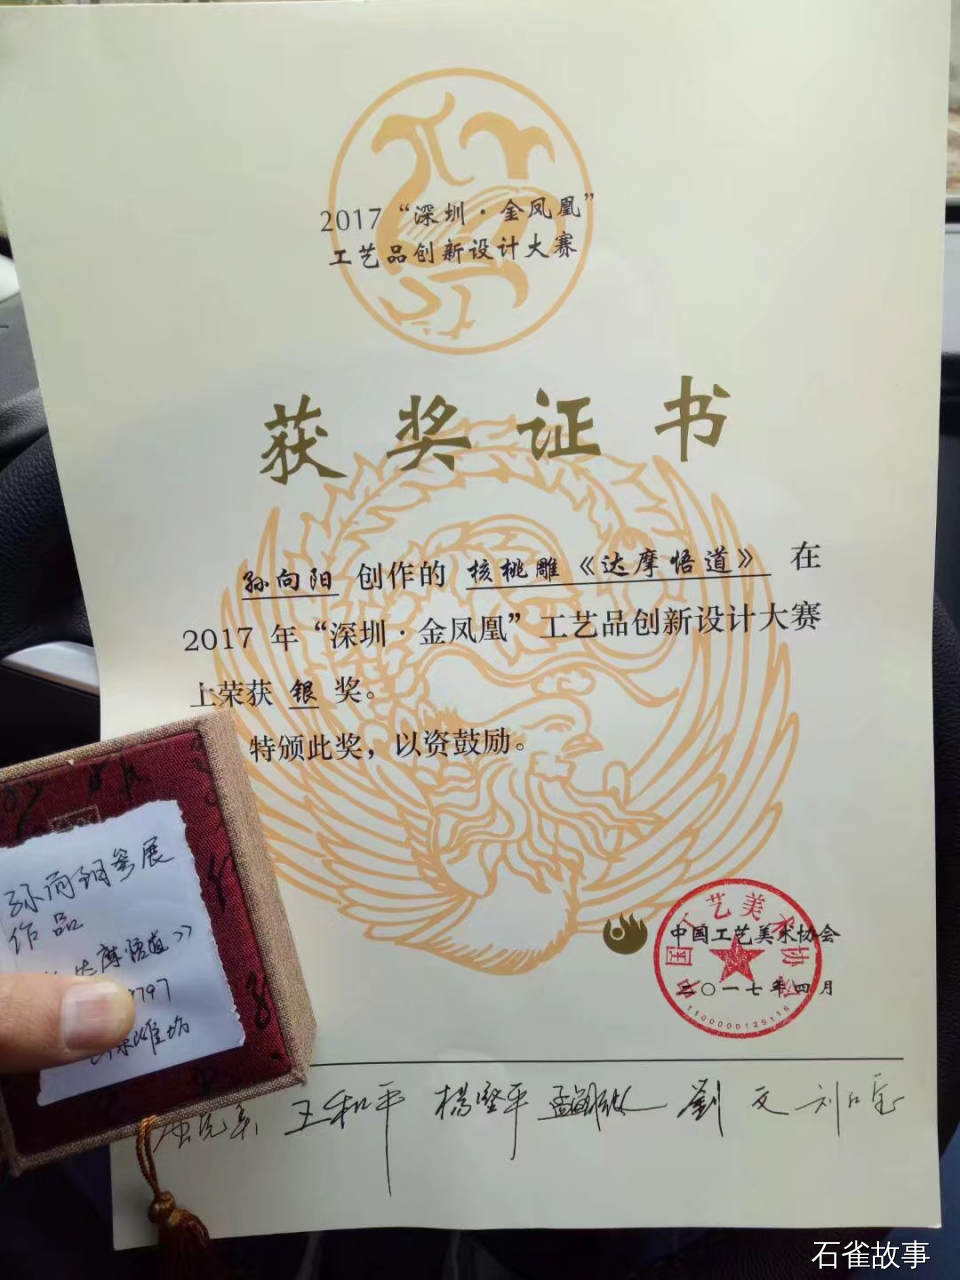 2017 “深圳·金凤凰”
工艺品创新设计大赛
获奖证书
孙向阳 创作的 核桃雕《达摩悟道》 在
2017 年“深圳·金凤凰”工艺品创新设计大赛
上荣获 银 奖。
特颁此奖，以资鼓励。
中国工艺美术协会
二〇一七年四月
1100000125115
孙向阳参展
作品
达摩悟道》
797
潍坊
王和平
杨坚平
劉文
石雀故事